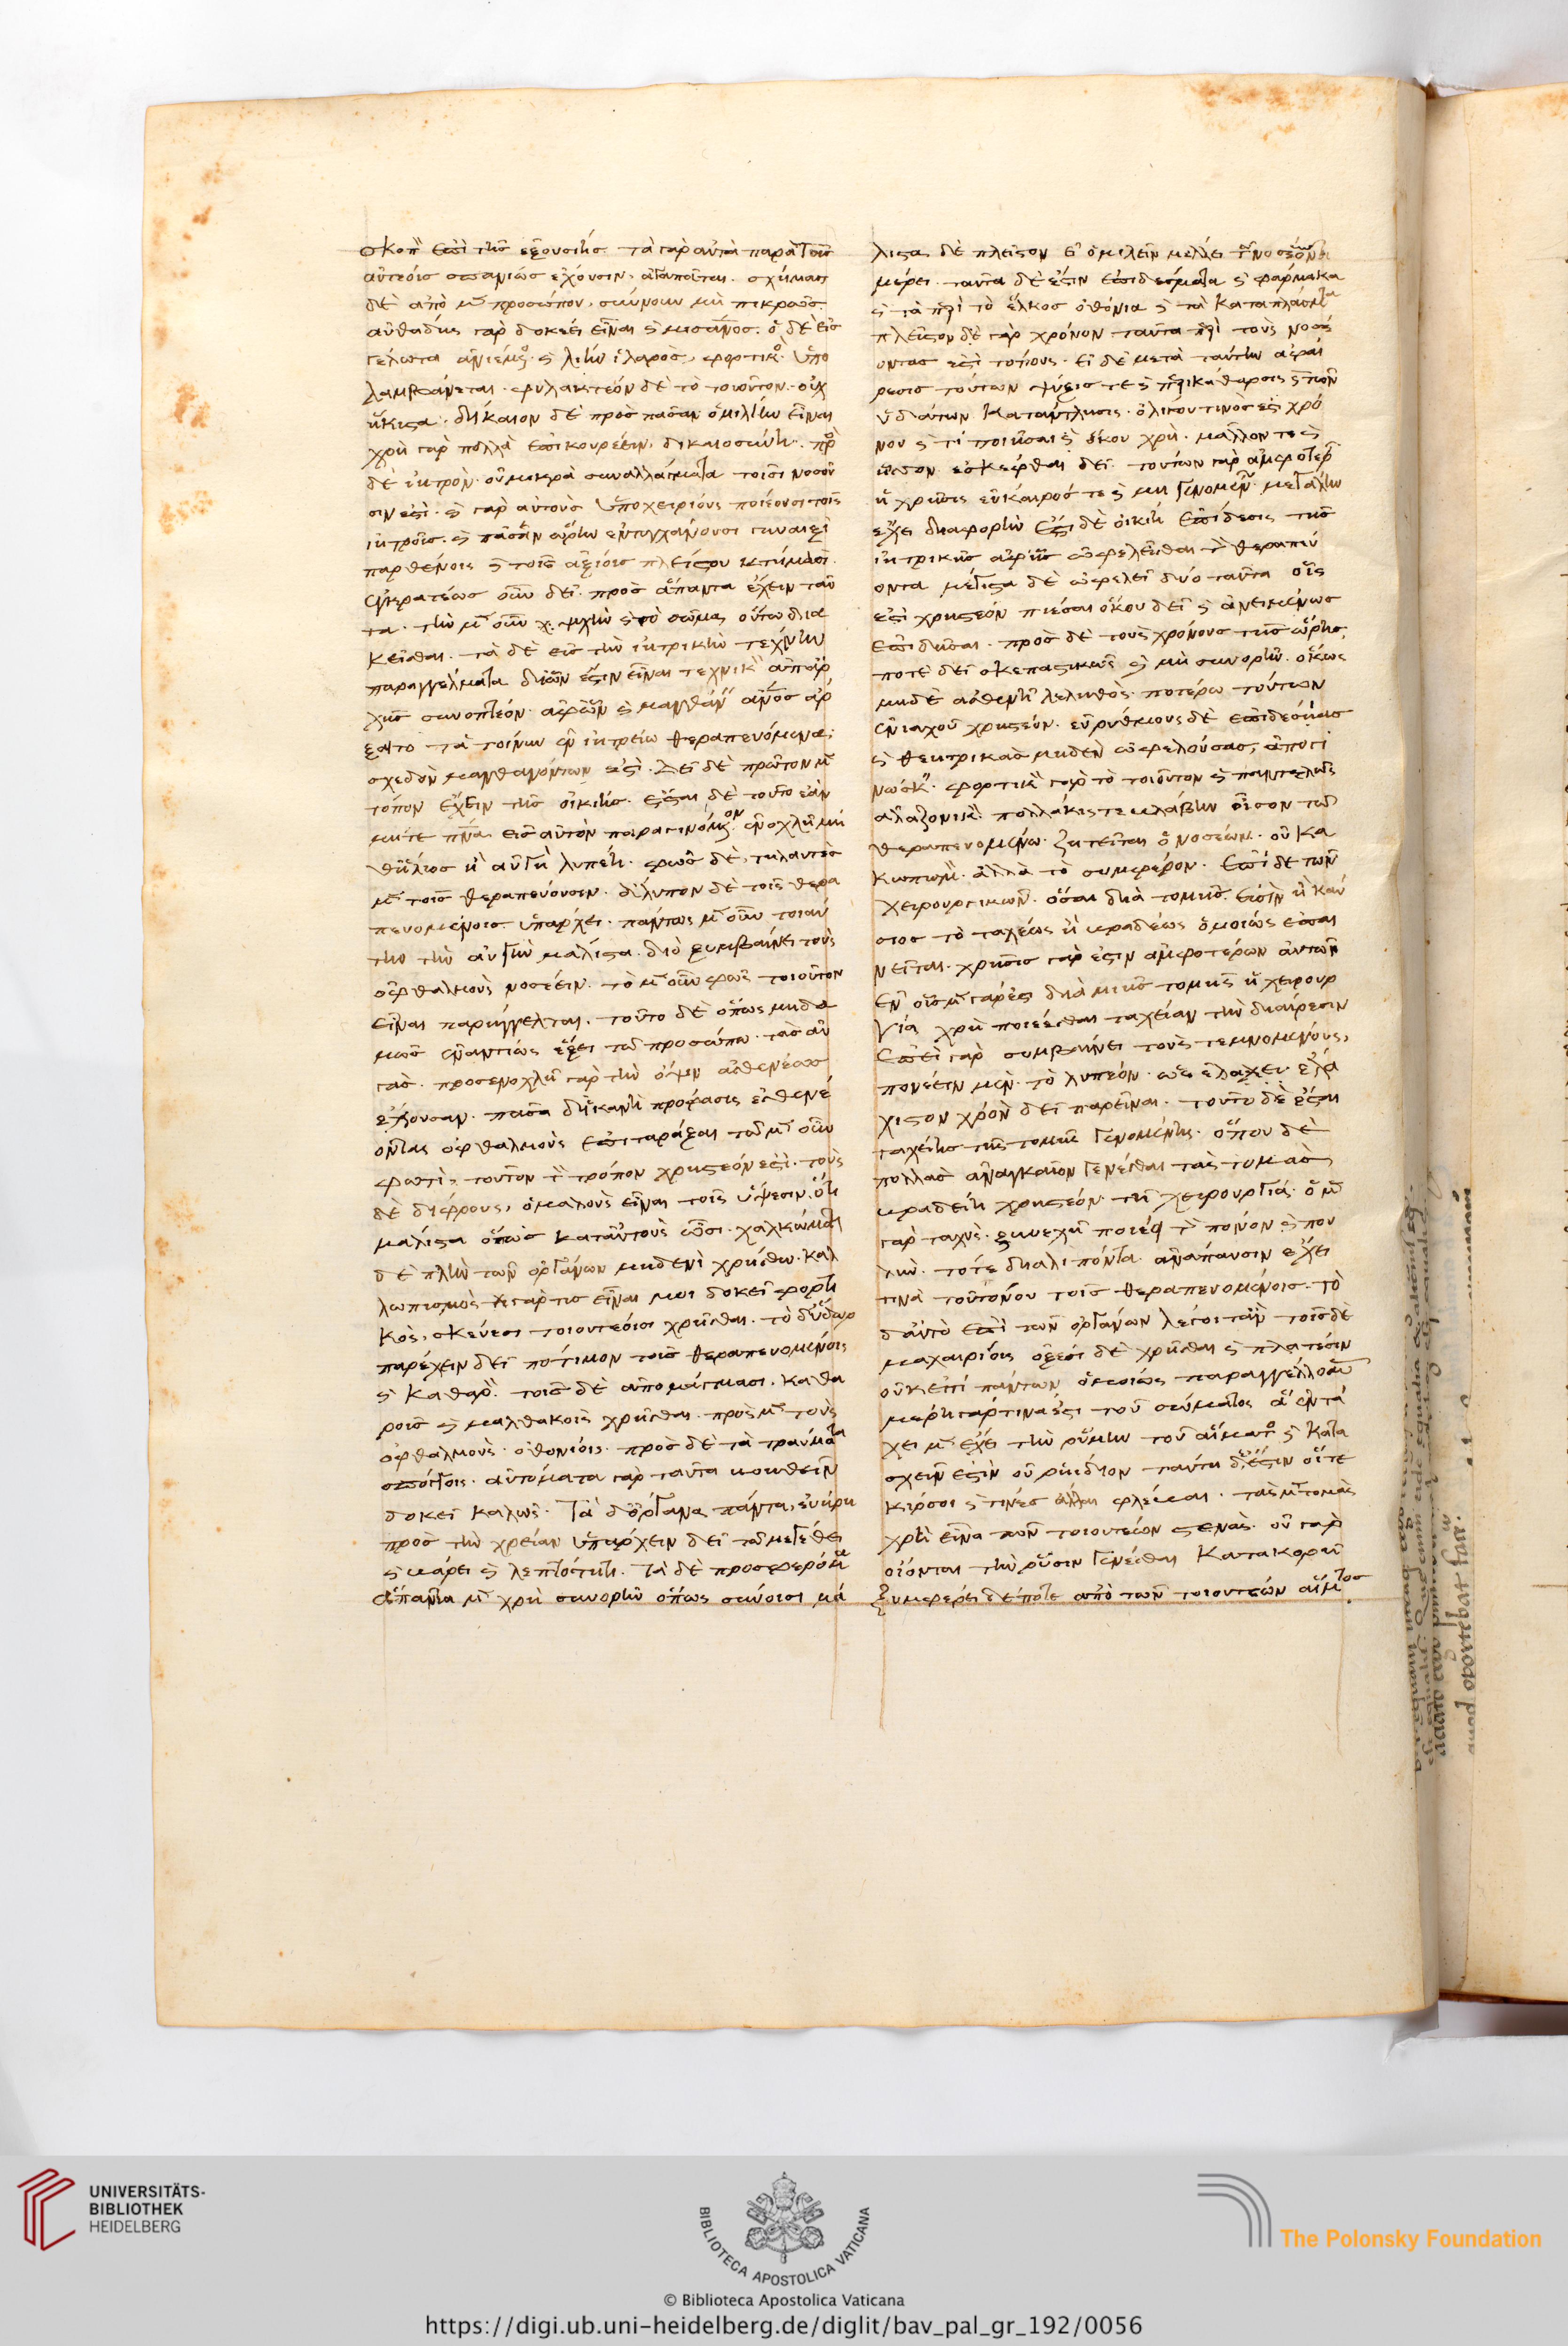 σκοπ επὶ τῆς εξουσίης τὰ γὰρ αυτὰ παρὰ τοῖς
αυτέοις σπανίως εχόυσιν, αγαπᾶται. σχήμασι
δὲ απὸ μ προσώπου, σύννουν μὴ πικρῶς.
αυθάδης γὰρ δοκέει εἶναι ϛ μισάνος. ὁ δὲ εἰς
γέλωτα ανιέμενος ϛ λίην ἱλαρὸς, φορτικὸς ὑπο
λαμβάνεται. φυλακτέον δὲ τὸ τοιοῦτον. οὐχ
ἥκιστα. δίκαιον δὲ πρὸς πᾶσαν ὁμιλίην εἶναι
χρὴ γὰρ πολλὰ επικουρέειν, δικαιοσύνη. πρὸς
δὲ ἰητρὸν οὐ μικρὰ συναλλάγματα τοῖσι νοσοῦ
σιν εστί. ϛ γὰρ αυτοὺς ὑποχειρίους ποιέουσι τοῖς
ἰητροῖς. ϛ πᾶσαν ὥρην εντυγχάνουσι γυναιξὶ
παρθένοις ϛ τοῖς αξίοις πλείστου κτήμασι.
εγκρατέως οὖν δεῖ πρὸς ἅπαντα ἔχειν ταῦ
τα. τὴν μ οὖν ψυχὴν ϛ τὸ σῶμα οὕτω δια
κεῖσθαι. τὰ δὲ εις τὴν ἰητρικὴν τέχνην
παραγγέλματα δι ὧν ἔστιν εἶναι τεχνικ απαρ
χῆς συνοπτέον αφ ὧν ϛ μανθάν ανος ἄρ
ξαιτο τὰ τοίνυν εν ἰητρείω θεραπευόμενα,
σχεδὸν μανθανόντων εστί. Δεῖ δὲ πρῶτον μ
τόπον ἔχειν τῆς οικίης. ἔσται δὲ τοῦτο εὰν
μήτε πνα εις αυτὸν παραγινόμενον ενοχλῆ μη
θ ἥλιος ἢ αυγὴ λυπέη. φῶς δὲ τηλαυγὲς
μ τοῖς θεραπεύουσιν. άλυπον δὲ τοῖς θερα
πευομένοις ὑπάρχει. πάντως μ οὖν τοιαύ
την τὴν αυγὴν μάλιστα. διὸ ξυμβαίνει τοὺς
οφθαλμοὺς νοσέειν. τὸ μ οὖν φῶς τοιοῦτον
εἶναι παρήγγελται. τοῦτο δὲ ὅπως μηδα
μῶς εναντίως ἕξει τῶ προσώπω τὰς αυ
γάς. προσενοχλεῖ γὰρ τὴν όψιν ασθενέως
έχουσαν. πᾶσα δ ἱκανὴ πρόφασις ασθενέ
οντας οφθαλμοὺς επιταράξαι τῶ μ οὖν
φωτὶ, τοῦτον τ τρόπον χρηστέον εστί. τοὺς
δὲ δίφρους, ὁμαλοὺς εἶναι τοῖς ὕψεσιν ὅτι
μάλιστα ὅπως κατ αυτοὺς ὦσι. χαλκώματι
δὲ πλὴν τῶν οργάνων μηδενὶ χρήσθω. καλ
λωπισμὸς γάρ τις εἶναι μοι δοκεῖ φορτι
κὸς, σκεύεσι τοιουτέοισι χρῆσθαι. τὸ δ ὕδωρ
παρέχειν δεῖ πότιμον τοῖς θεραπευομένοις
ϛ καθαρ. τοῖς δὲ απομάγμασι, καθα
ροῖς ϛ μαλθακοῖς χρῆσθαι. πρὸς μ τοὺς
οφθαλμοὺς οθονίοις. πρὸς δὲ τὰ τραύματα
σπόγγοις. αυτόματα γὰρ ταῦτα βοηθεῖν
δοκεῖ καλῶς. Τὰ δ όργανα πάντα, ευήρη
πρὸς τὴν χρείαν ὑπάρχειν δεῖ τῶ μεγέθει
ϛ βάρει ϛ λεπτότητι. Τὰ δὲ προσφερόμενα
ἅπαντα μ χρὴ συνορῆν ὅπως συνοίσι μά
λιστα δὲ πλεῖστον ει ὁμιλεῖν μέλλει τ νοσέοντι
μέρει. ταῦτα δὲ έστιν επιδέσματα ϛ φάρμακα
ϛ τὰ περὶ τὸ ἕλκος οθόνια ϛ τὰ καταπλάσματα
πλεῖστον δὲ γὰρ χρόνον ταῦτα περὶ τοὺς νοσέ
οντας εστὶ τόπους. Ει δὲ μετὰ ταύτην αφαί
ρεσις τούτων ψύξις τε ϛ περικάθαρσις ϛ τῶν
ὑδάτων κατάντλησις. ολίγου τινὸς εστὶ χρό
νου ϛ τί ποιῆσαι ϛ όκου χρὴ. μᾶλλόν τε ϛ
ἧσσον εσκέφθαι δεῖ. τούτων γὰρ αμφοτέρων
ἡ χρῆσις εύκαιρός τε ϛ μὴ γινομέν μεγάλην
έχει διαφορὴν Έστι δὲ οικίη επίδεσις τῆς
ἰητρικῆς αφ ἧς ωφελεῖσθαι τ θεραπευ
όντα μέγιστα δὲ ωφελεῖ δύο ταῦτα οἷς
εστὶ χρηστέον πιέσαι όκου δεῖ ϛ ανειμένως
επιδῆσαι. πρὸς δὲ τοὺς χρόνους τῆς ὥρης,
πότε δεῖ σκεπαστικῶς ϛ μὴ συνορῆν. ὅκως
μηδὲ ασθενὴς λεληθὸς ποτέρω τούτων
ενιαχοῦ χρηστέον. ευρύθμους δὲ επιδέσιας
ϛ θεητρικὰς μηδὲν ωφελούσας, απογι
νώσκ. φορτικ γὰρ τὸ τοιοῦτον ϛ παντελῶς
αλαζονικ. πολλάκις τε βλάβην οἶσον τῶ
θεραπευομένω. ζητεῖται ὁ νοσέων ου κα
λωπισμ. αλλὰ τὸ συμφέρον. Επὶ δὲ τῶν
χειρουργικῶν. ὅσαι διὰ τομῆς εισὶν ἢ καύ
σιος τὸ ταχέως ἢ βραδέως ὁμοίως επαι
νεῖται. χρῆσις γάρ εστιν αμφοτέρων αυτῶν
εν οἷς μ γάρ εστι διὰ μιῆς τομῆς ἡ χειρουρ
γία χρὴ ποιέεσθαι ταχείαν τὴν διαίρεσιν
Επεὶ γὰρ συμβαίνει τοὺς τεμνομένους,
πονέειν μὲν. τὸ λυπέον. ὡς ελάχει ελά
χιστον χρόν δεῖ παρεῖναι. τοῦτο δὲ έσται
ταχείης τῆς τομῆς γενομένης. ὅπου δὲ
πολλὰς αναγκαῖον γενέσθαι τὰς τομὰς
βραδείη χρηστέον τῆ χειρουργία. ὁ μ
γὰρ ταχὺς ξυνεχῆ ποιέει τ πόνον ϛ που
λύν. τὸ τε διαλιπόντα ανάπαυσιν έχει
τινὰ τοῦ πόνου τοῖς θεραπευομένοις. Τὸ
δ αυτὸ επὶ τῶν οργάνων λέγοιτ ὰν τοῖς δὲ
μαχαιρίοις οξέσι δὲ χρῆσθαι ϛ πλατέσιν
ουκ επὶ πάντων ὁμοίως παραγγέλλομεν
μέρη γάρ τινα έστι τοῦ σώματος ἃ εν τά
χει μ έχει τὴν ῥύμην τοῦ αἵματος ϛ κατα
σχεῖν εστὶν ου ῥηίδιον ταύτη δ έστιν οἵτε
κιρσοὶ ϛ τινὲς άλλαι φλέβαι. τὰς μ τομὰς
χρὴ εἶναι τῶν τοιουτέων στενάς. ου γὰρ
οίονται τὴν ῥύσιν γενέσθαι κατακορῆ
ξυμφέρει δέ ποτε απὸ τῶν τοιουτέων αἵματος
UNIVERSITÄTS-
BIBLIOTHEK
HEIDELBERG
BIBLIOTECA APOSTOLICA VATICANA
The Polonsky Foundation
© Biblioteca Apostolica Vaticana
https://digi.ub.uni-heidelberg.de/diglit/bav_pal_gr_192/0056